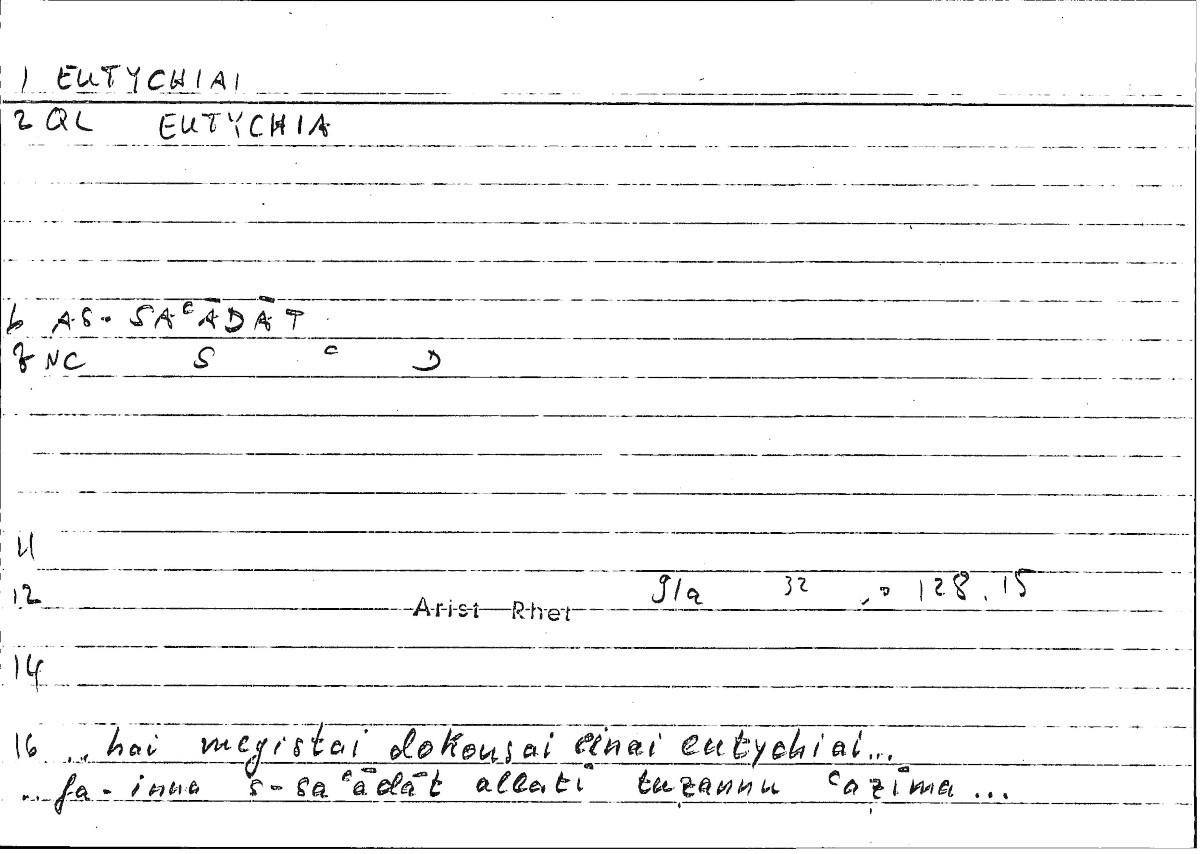 1 EUTYCHIAI
2 QL EUTYCHIA
6 AS-SAᶜĀDĀT
7 NC S ᶜ D
11
12 Arist Rhet 91a 32 128.15
14
16 ... hai megistai dokousai einai eutychiai...
.. fa-inna s-saᶜādāt allatī tuzannu ᶜazīma ...